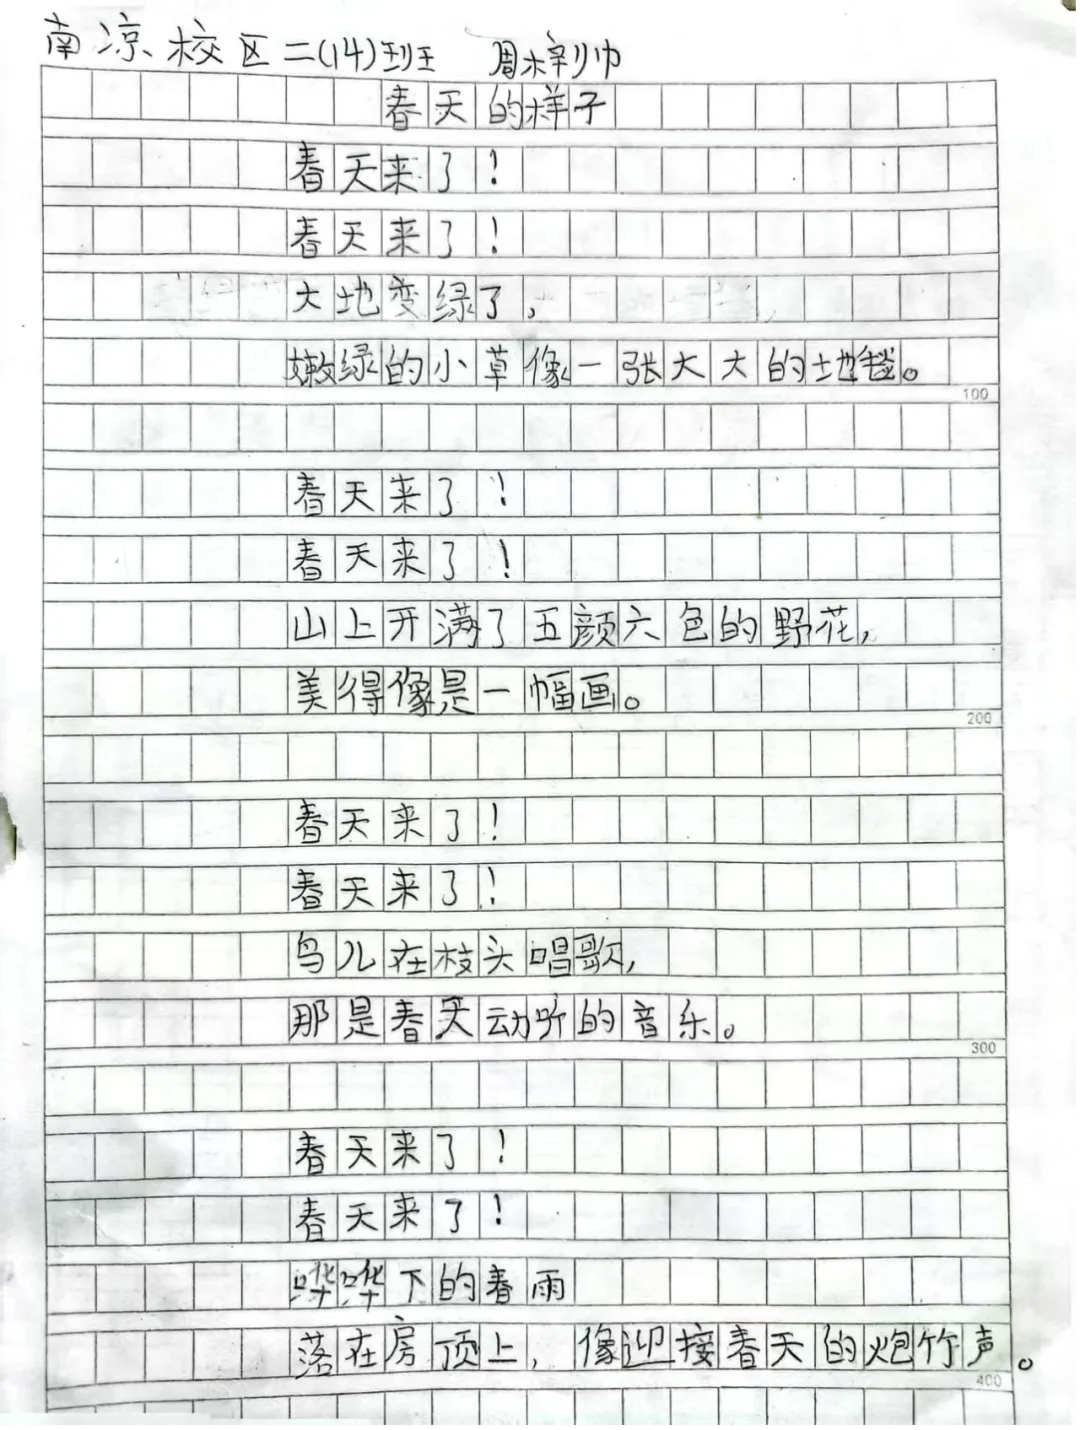 南凉校区二(14)班 周梓帅
春天的样子
春天来了!
春天来了!
大地变绿了,
嫩绿的小草像一张大大的地毯。
100
春天来了!
春天来了!
山上开满了五颜六色的野花,
美得像是一幅画。
200
春天来了!
春天来了!
鸟儿在枝头唱歌,
那是春天动听的音乐。
300
春天来了!
春天来了!
哗哗下的春雨
落在房顶上,像迎接春天的炮竹声。
400